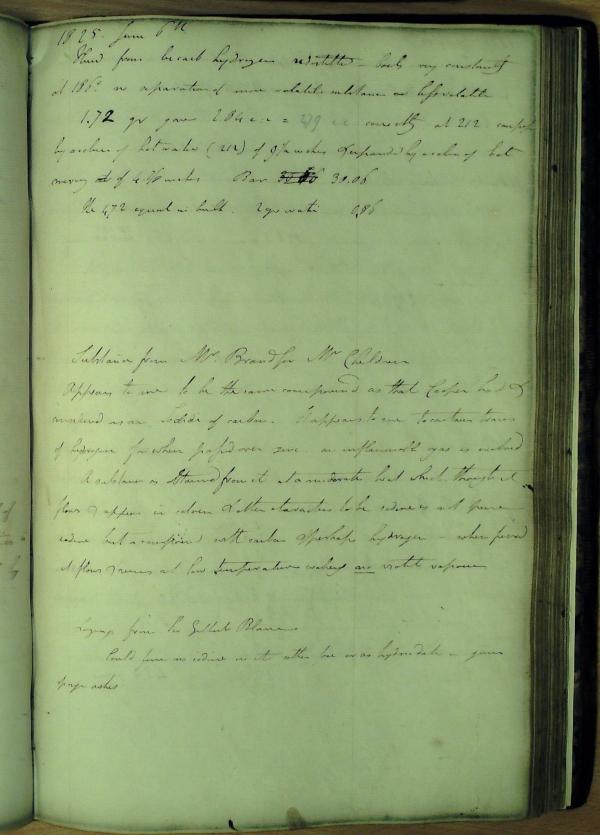 1825. June 6th
Fluid from bicarb hydrogen redistilled - boils very constantly
at 186° no separation of more volatile substance or less volatile
1.72 gr gave 284 c:c = 49 c c correctly at 212
by a column of hot water (212) of 9 inches & expanded by a column of hot
mercury of inches Bar. 30.06
equal in bulk. 2 gr water 0.86
Substance from Mr. Brand for Mr Children
Appears to me to be the same compound as that Cooper had &
considered as an Iodide of carbon. It appears to me to contain traces
of hydrogen for when passed over zinc an inflammable gas is evolved
A substance is obtained from it at a moderate heat which though it
flows & appears in colour & other characters to be iodine is not pure
iodine but a compound with carbon & perhaps hydrogen - when fused
it flows & at low temperature making no violet vapour
from Sir Gilbert Blane
Could find no iodine in it either free or as hydriodate in
sponge ashes